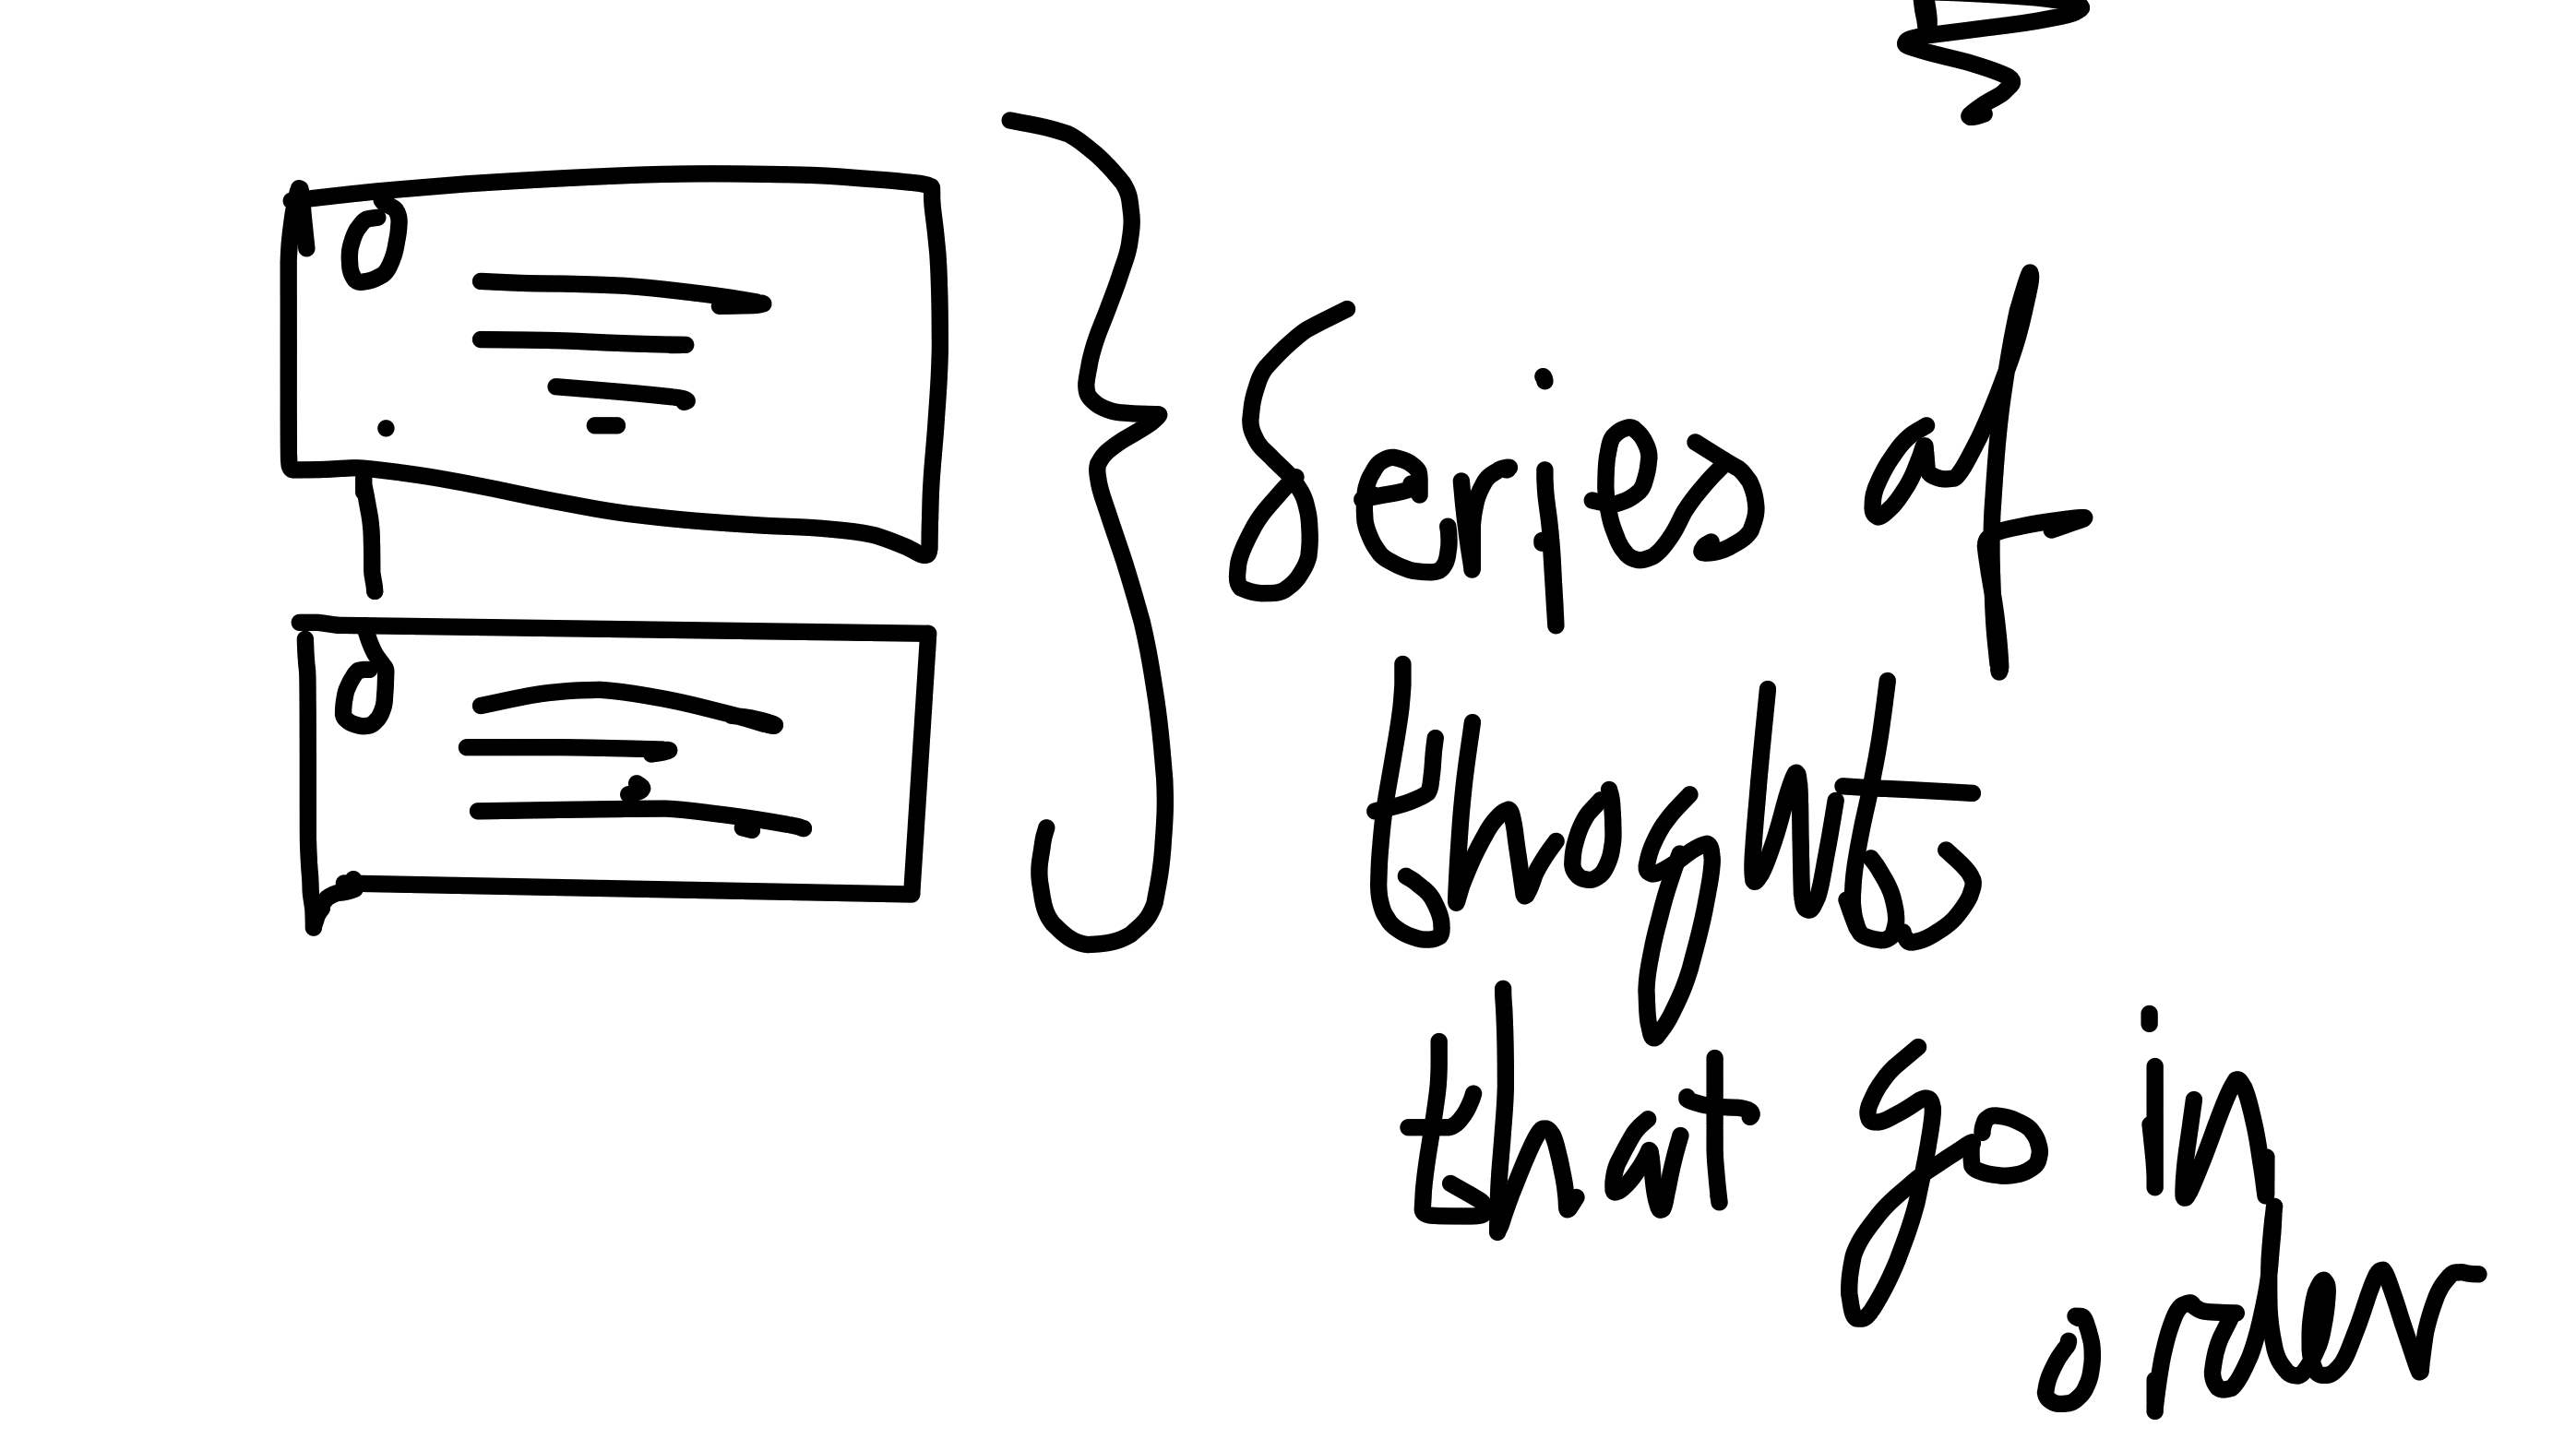 Series of
thoghts
that go in
order